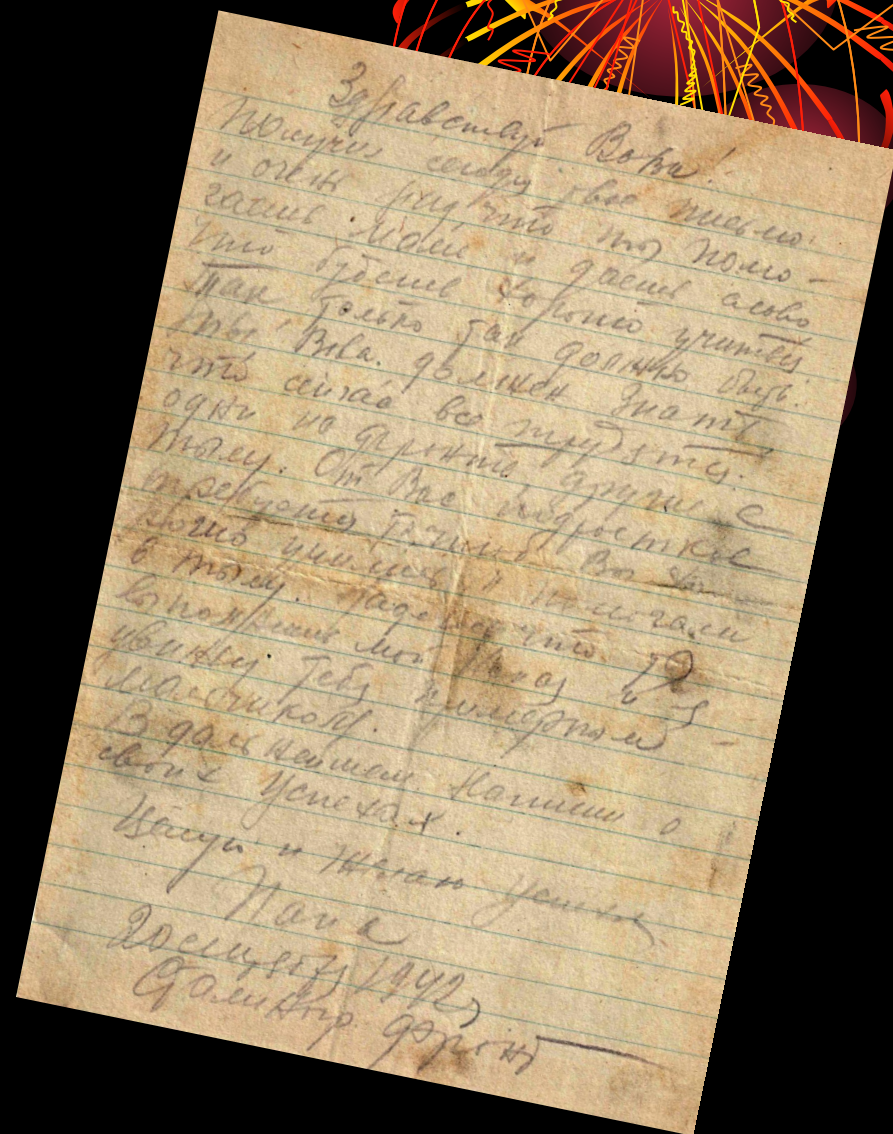 Здравствуй Вова!
Получил сегодня твое письмо.
и очень рад что ты помо-
гаешь маме и даешь слово
что будешь хорошо учиться
Так только так должно быть.
Вова. должен знать
что сейчас все трудятся.
одни на фронте, другие в
тылу. От Вас подростков
требуется Вы
учились и помогали
в тылу. что
мой наказ и я
увижу тебя примерным
мальчиком.
В дальнейшем. Напиши о
своих успехах.
Целую и желаю успеха
Папа
20 сентября 1942,
Сталингр. фронт